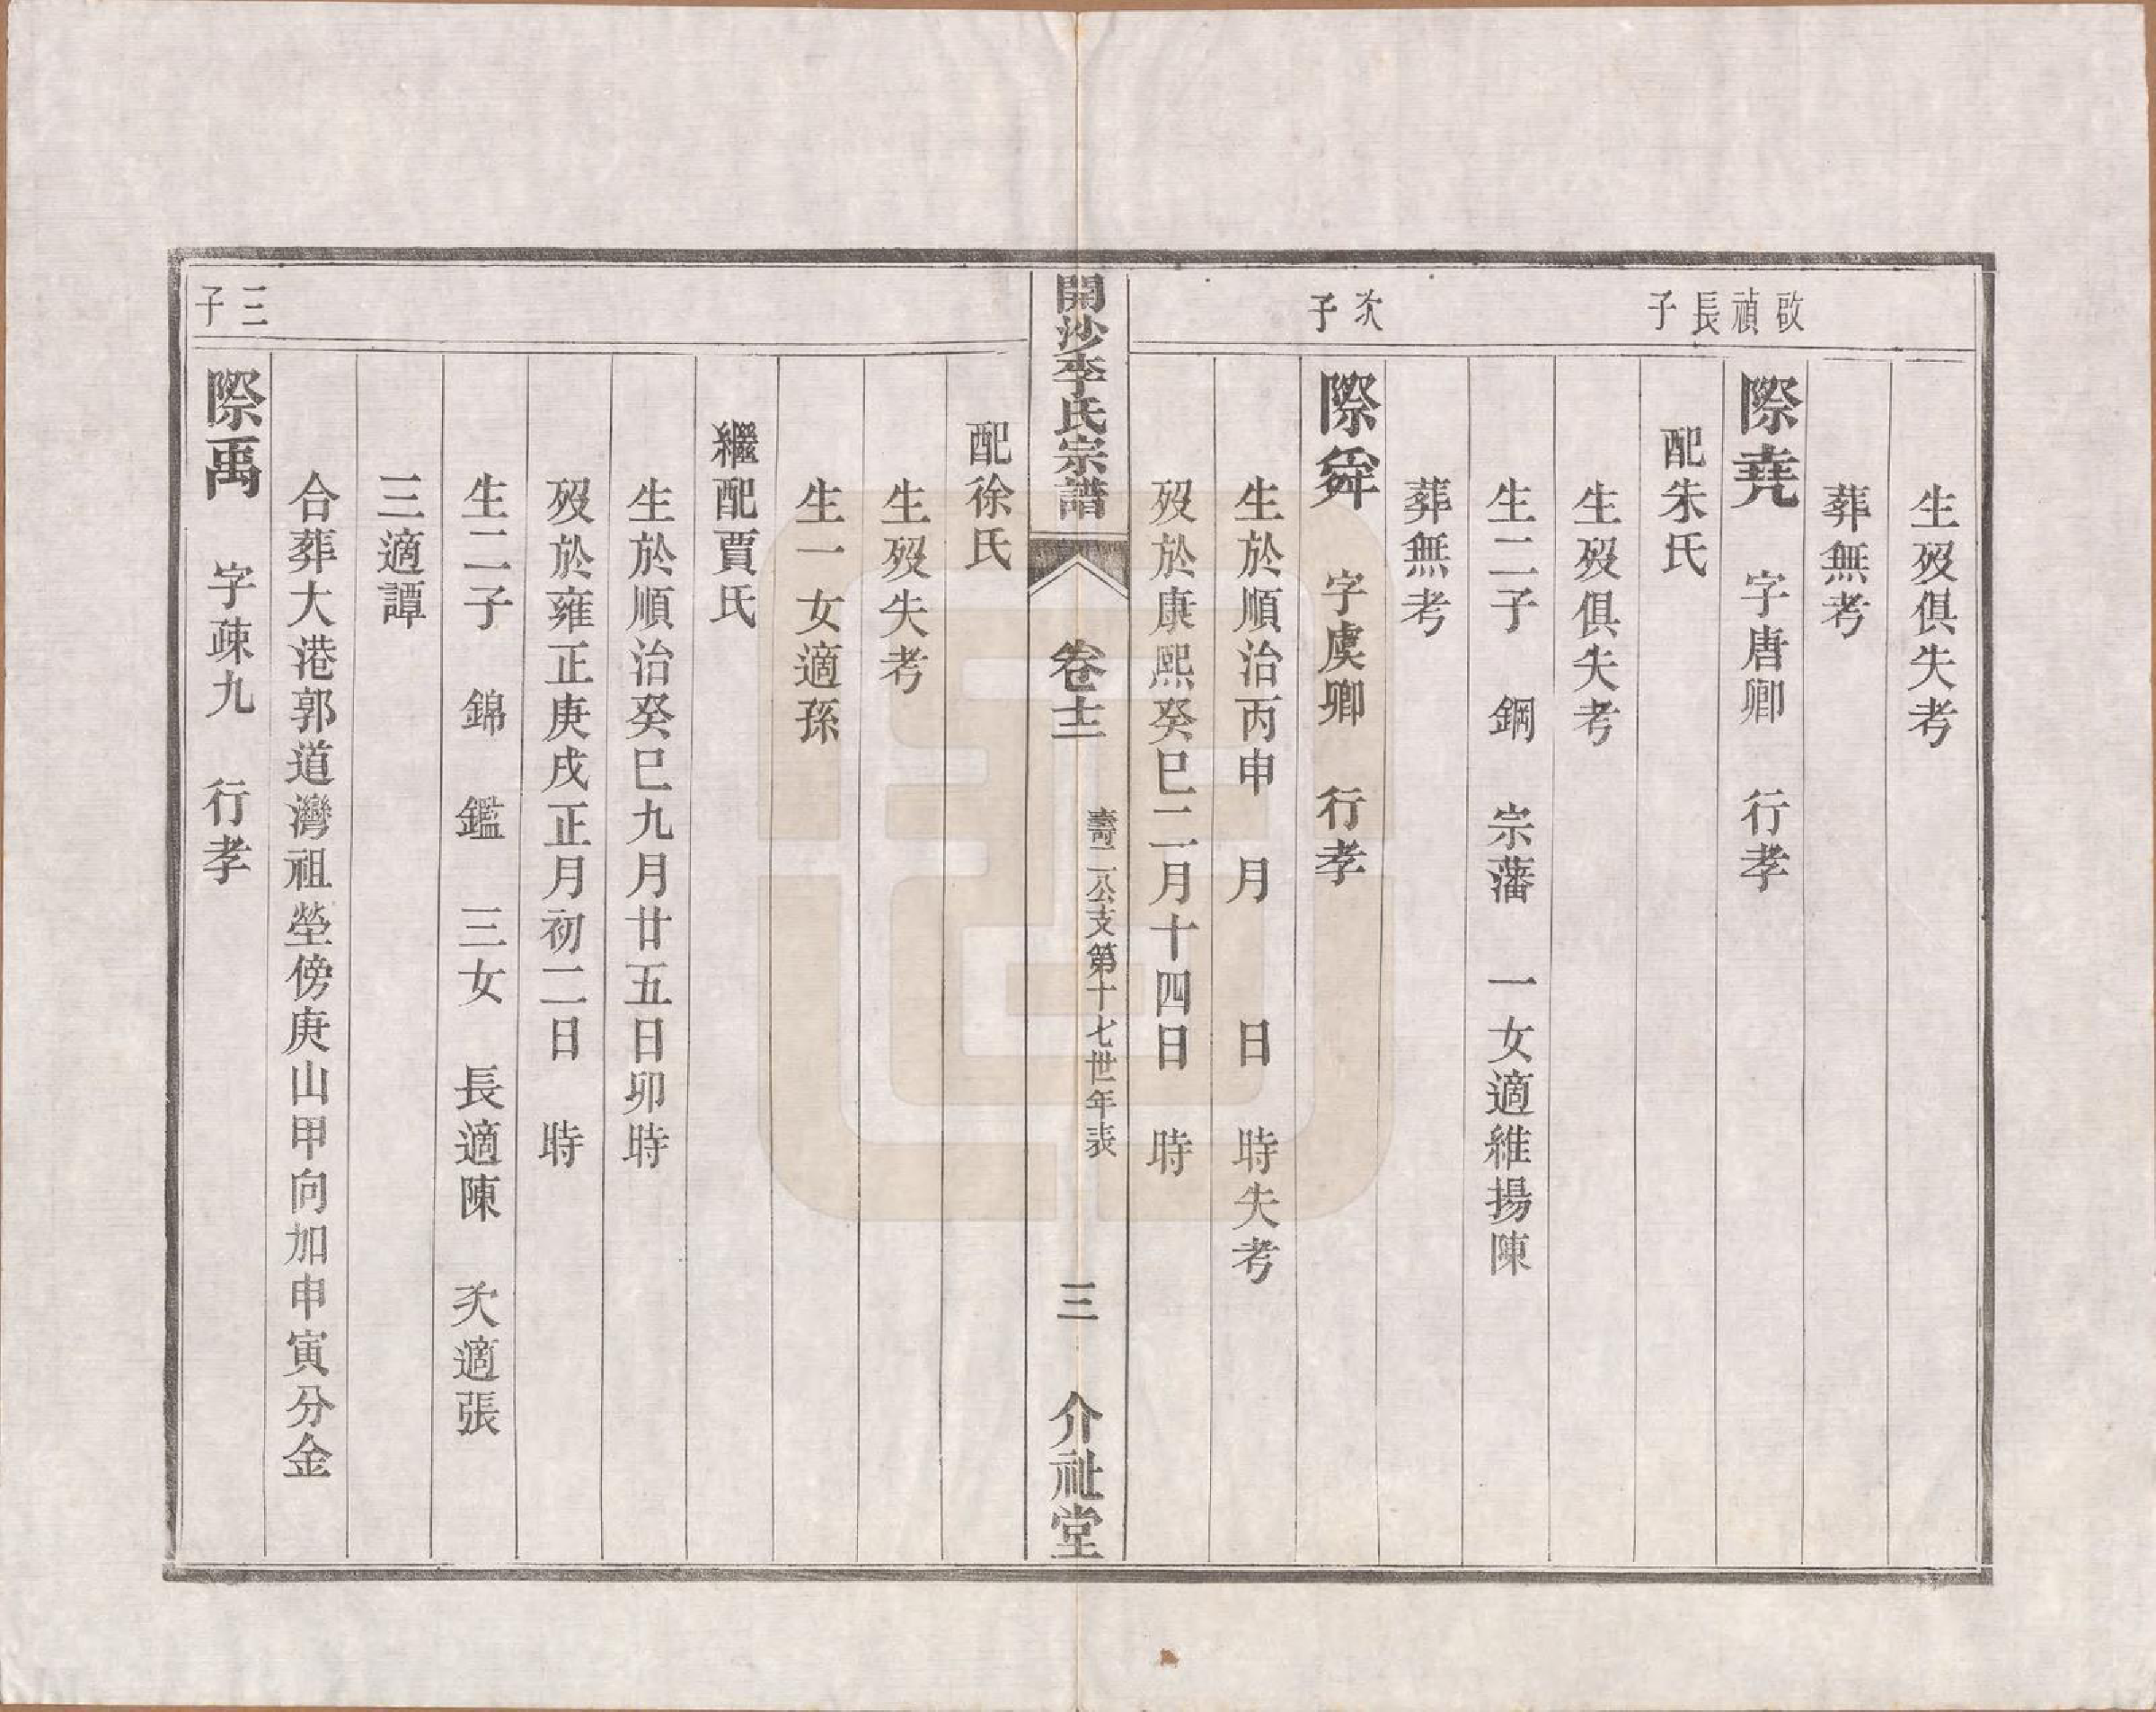 生歿俱失考
葬無考
啟禎長子
際堯　字唐卿　行孝
配朱氏
生歿俱失考
生二子　鋼　宗藩　一女適維揚陳
葬無考
次子
際舜　字虞卿　行孝
生於順治丙申　月　日　時失考
歿於康熙癸巳二月十四日　時
開沙李氏宗譜
卷十三
壽二公支第十七世年表
三
介祉堂
配徐氏
生歿失考
生一女適孫
繼配賈氏
生於順治癸巳九月廿五日卯時
歿於雍正庚戌正月初二日　時
生二子　錦　鑑　三女　長適陳　次適張
三適譚
合葬大港郭道灣祖塋傍庚山甲向加申寅分金
三子
際禹　字疎九　行孝